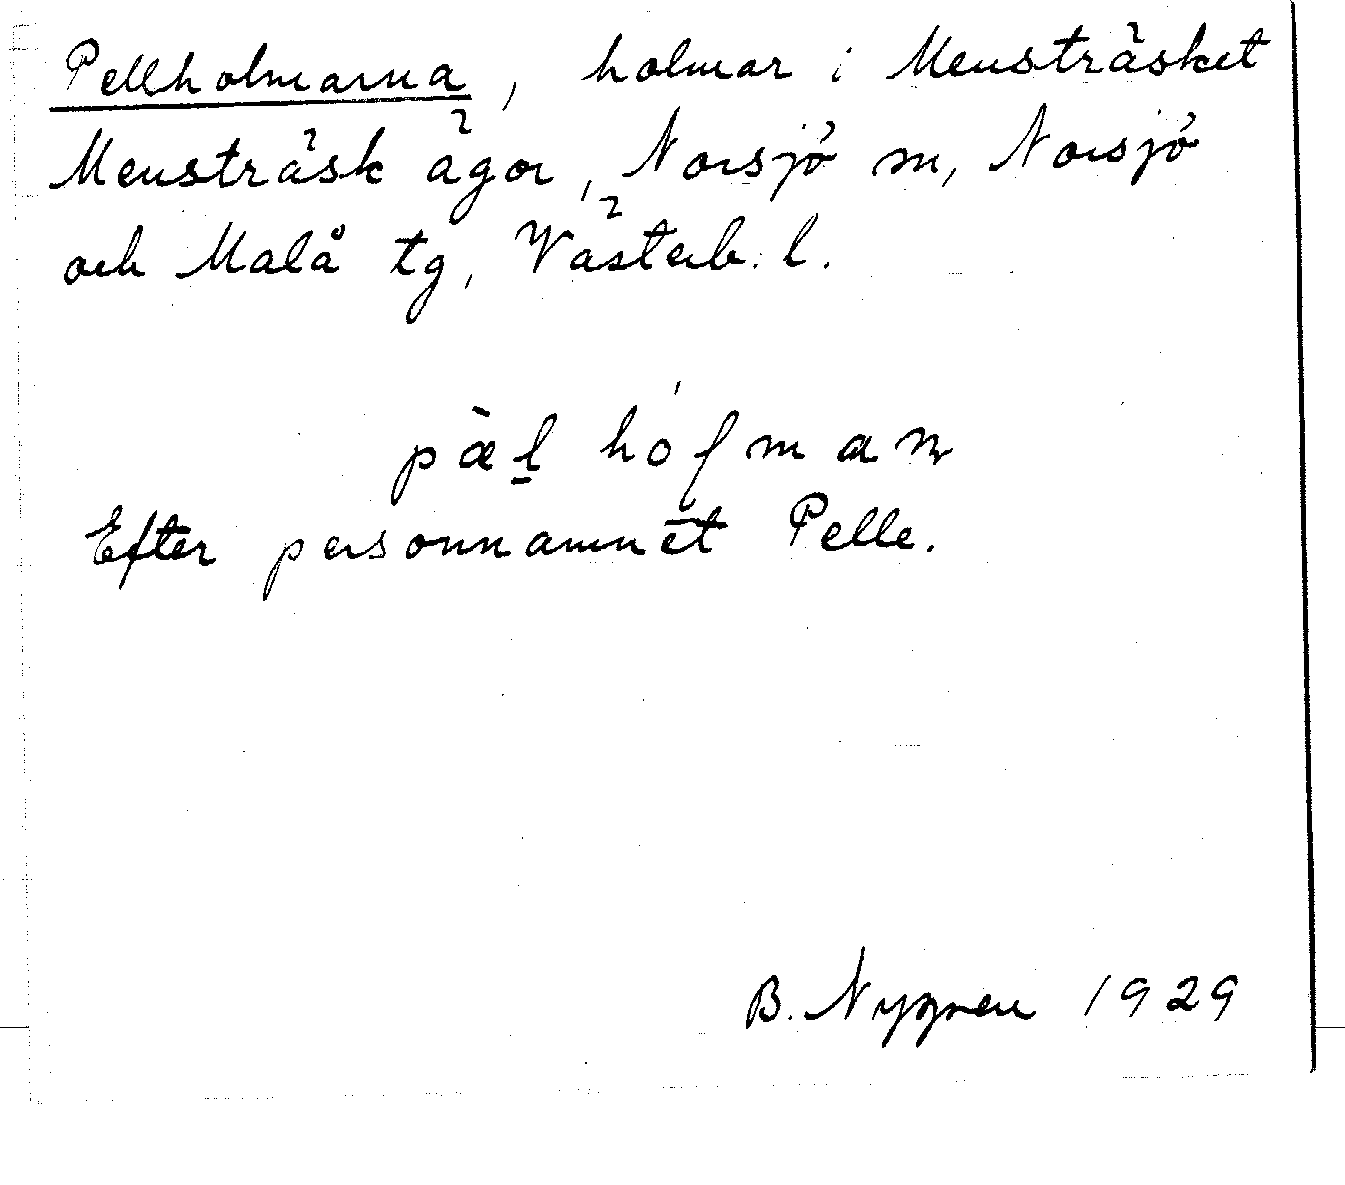 Pellholmarna, holmar i Mensträsket
Mensträsk ägor, Norsjö sn, Norsjö
och Malå tg, Västerb. l.
pæ̀l hólman
Efter personnamnet Pelle.
B. Nygren 1929